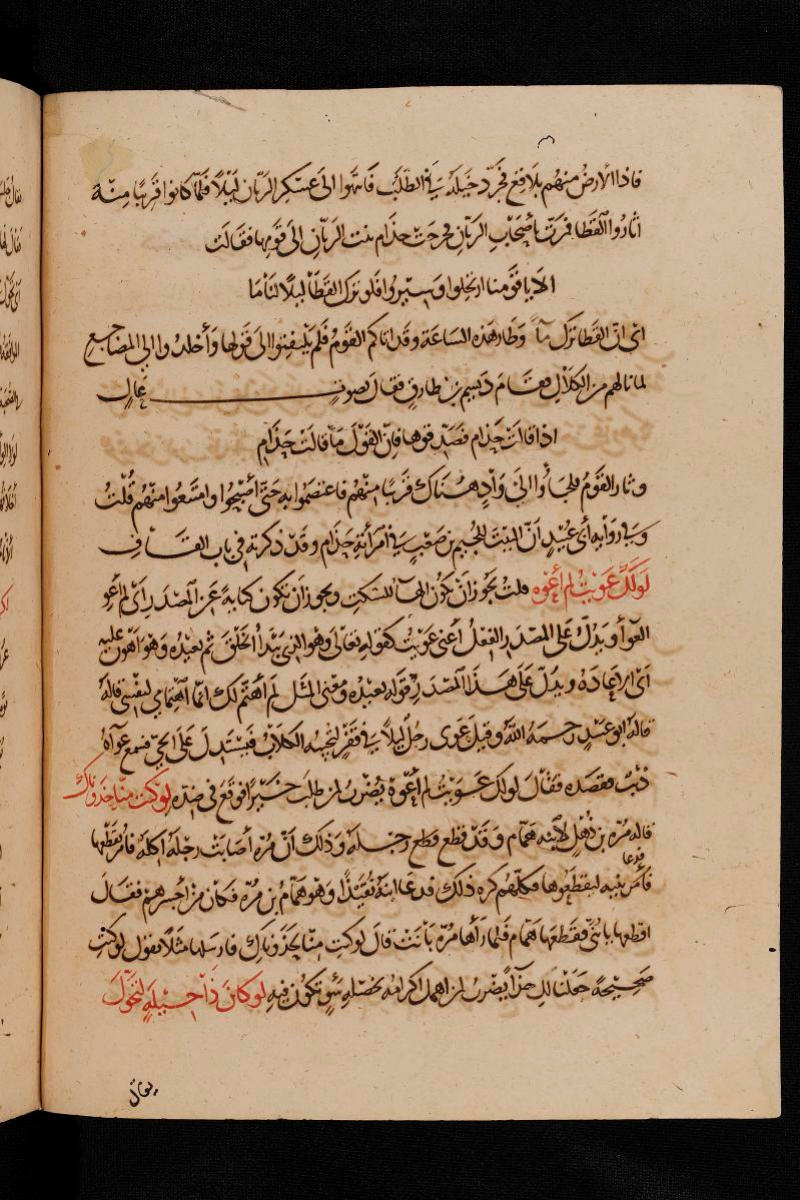 فاذا الارضُ منهم بلاقع فجرّد خيله في الطلب فانتهوا الى عسكر الريّان ليلًا فلمّا كانوا قريبًا منه
اثاروا القطا فمرّت بأصحاب الريّان فخرجت حذام بنت الريّان الى قومها فقالت
الا يا قومنا ارتحلوا وسيروا فلو ترك القطا ليلًا لناما
اى انّ القطا ترك ما وطار هذه الساعة وقد اتاكم القوم فلم يلتفتوا الى قولها وأخلدوا الى المضاجع
لما نالهم من الكلال فقام ديسم بن طارق فقال بصوت عال
اذا قالت حذام فصدّقوها فانّ القول ما قالت حذام
وثار القوم فلجأوا الى وادٍ هناك قريبًا منهم فاعتصموا به حتّى أصبحوا وامتنعوا منهم قلتُ
وفي رواية أبى عبيد أنّ البيت للجيم بن صعب في امرأته حذام وقد ذكرته في باب القاف
لو لك عويت لم أعوه قلت يجوز أن تكون الهاء للسكت ويجوز أن تكون كناية عن المصدر اى لم اعو
العوأ ويدلّ على المصدر الفعل أعنى عويت كقوله تعالى وهو الذي يبدأ الخلق ثم يعيده وهو أهون عليه
اى الاعادة ويدلّ على هذا المصدر قوله يعيده ومعنى المثل لم أهتمّ لك انّما اهتمامي لنفسي قاله
قاله ابو عبيد رحمه الله وقيل عوى رجل ليلًا في قفر لتجيبه الكلاب فيستدل على الحيّ فسمع عواه
ذئب فقصده فقال لو لك عويت لم أعوه يضرب لمن طلب خيرًا فوقع في ضدّه لو كنت منّا حذوناك
قاله مرّة بن ذهل لابنه همّام وقد قطع رجله وذلك أنّ مرّة أصابت رجله أكلة فأمر بقطعها
فأمر بنيه ليقطعوها فكلّهم كره ذلك فدعا ابنه نقيذًا وهو همّام بن مرّة فكان من أجسرهم فقال
اقطعها يا بنيّ فقطعها همّام فلما رأها مرّة بانت قال لو كنتِ منّا حذوناك فارسلها مثلًا يقول لو كنتِ
صحيحة جعلنا لك حذاً يضرب لمن اهمل اكرامه لخصلة سوء تكون فيه لو كان ذا حيلة لتحوّل
يقال